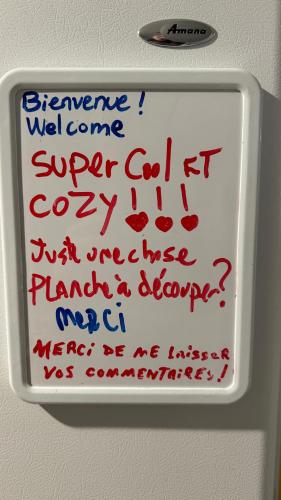 Amana
Bienvenue !
Welcome
SUPER Cool ET
COZY !!!
Juste une chose
PLANche à découper?
MERCI
MERCI DE ME LAISSER
VOS COMMENTAIRES !